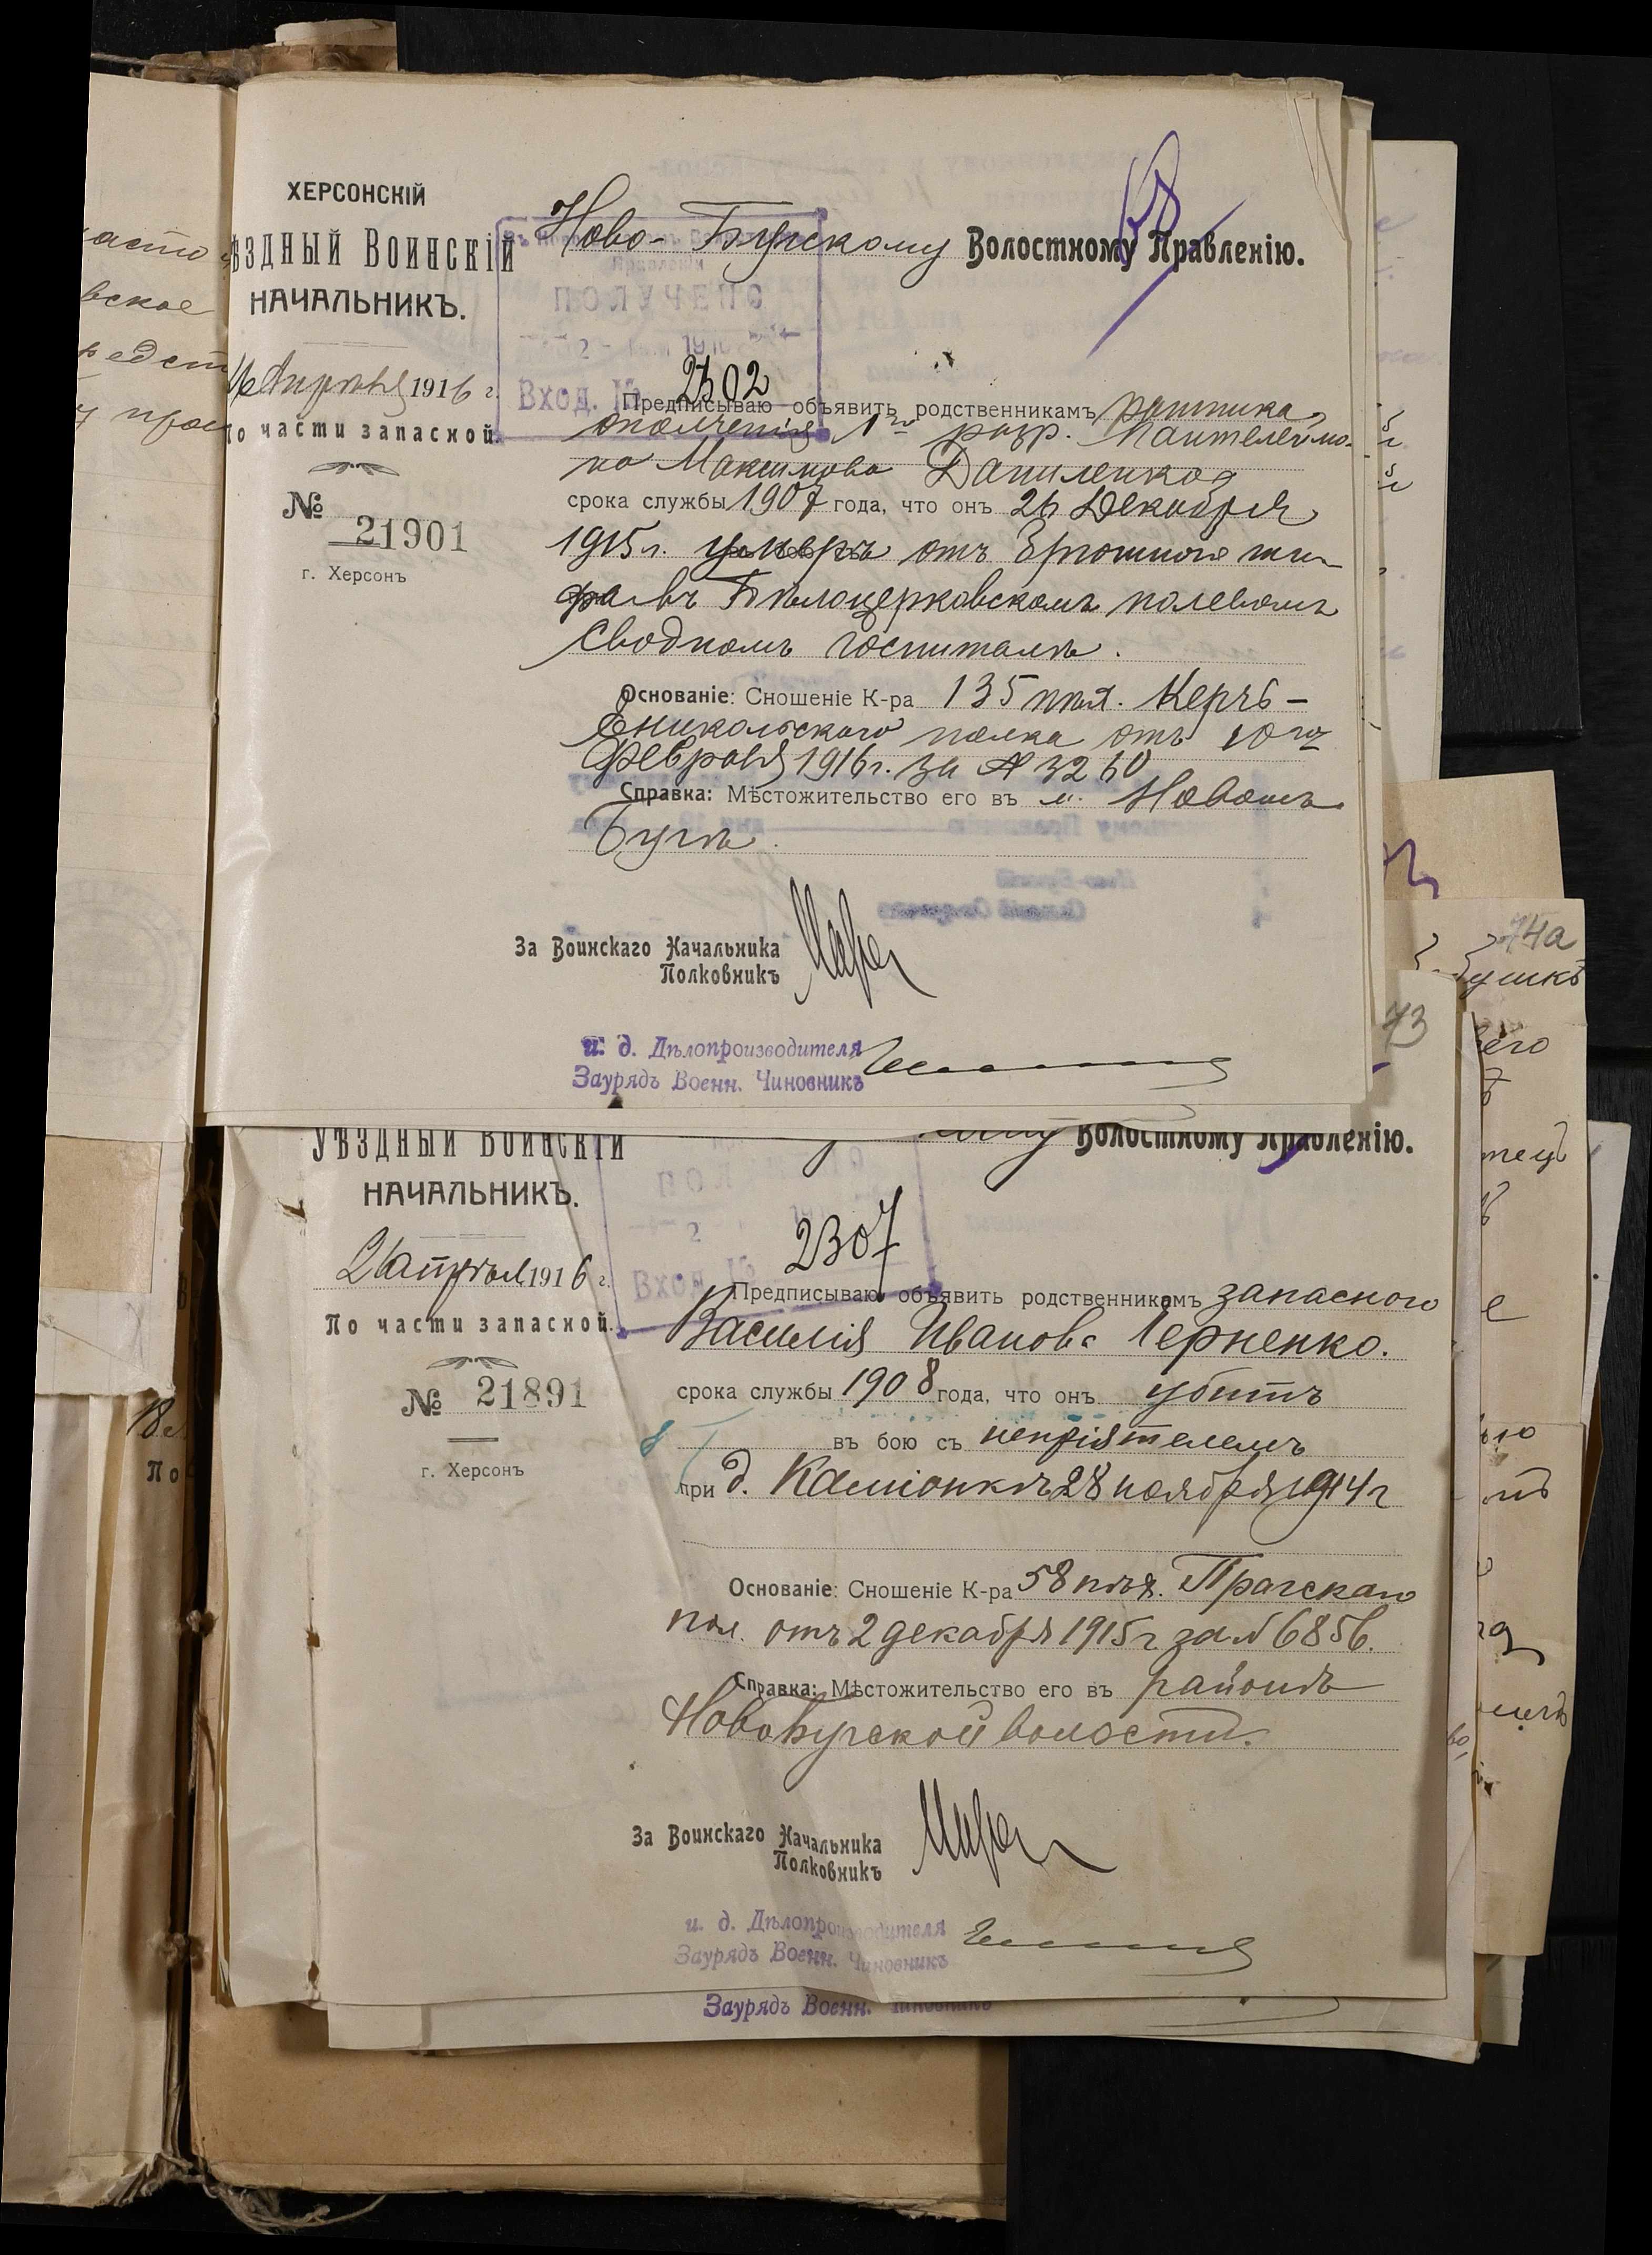 ХЕРСОНСКІЙ
ѢЗДНЫЙ ВОИНСКІЙ
НАЧАЛЬНИКЪ.
Апрѣля 1916 г.
По части запасной.
№ 21901
г. Херсонъ
Ново-Бугскому Волостному Правленію.
ПОЛУЧЕНО
2
Вход. № 2302
Предписываю объявить родственникамъ ратника
ополченія 1го разр. Пантелеймо-
на Максимова Даниленко
срока службы 1907 года, что онъ 26 Декабря
1915 г. умеръ отъ брюшного ти-
фа въ Бѣлоцерковскомъ полевомъ
сводномъ госпиталѣ.
Основаніе: Сношеніе К-ра 135 пѣх. Керчь-
Еникольскаго полка отъ 10го
февраля 1916 г. за № 3260
Справка: Мѣстожительство его въ м. Новомъ
Бугѣ.
За Воинскаго Начальника
Полковникъ
и. д. Дѣлопроизводителя
Заурядъ Военн. Чиновникъ
УѢЗДНЫЙ ВОИНСКІЙ
НАЧАЛЬНИКЪ.
Волостному Правленію.
апрѣля 1916 г.
По части запасной.
№ 21891
г. Херсонъ
2
Вход. №
2307
Предписываю объявить родственникамъ запасного
Василія Иванова Черненко.
срока службы 1908 года, что онъ убитъ
въ бою съ непріятелемъ
при д. Каміонкѣ 28 ноября 1914 г
Основаніе: Сношеніе К-ра 58 пѣх. Прагскаго
пол. отъ 2 декабря 1915 г за № 6856.
Справка: Мѣстожительство его въ районѣ
Новобугской волости.
За Воинскаго Начальника
Полковникъ
и. д. Дѣлопроизводителя
Заурядъ Военн. Чиновникъ
Заурядъ Военн. Чиновникъ
74а
73
его